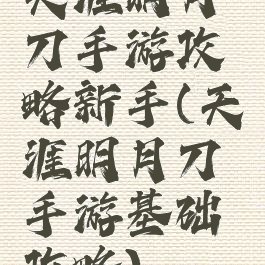 天涯明月
刀手游攻
略新手(天
涯明月刀
手游基础
攻略)